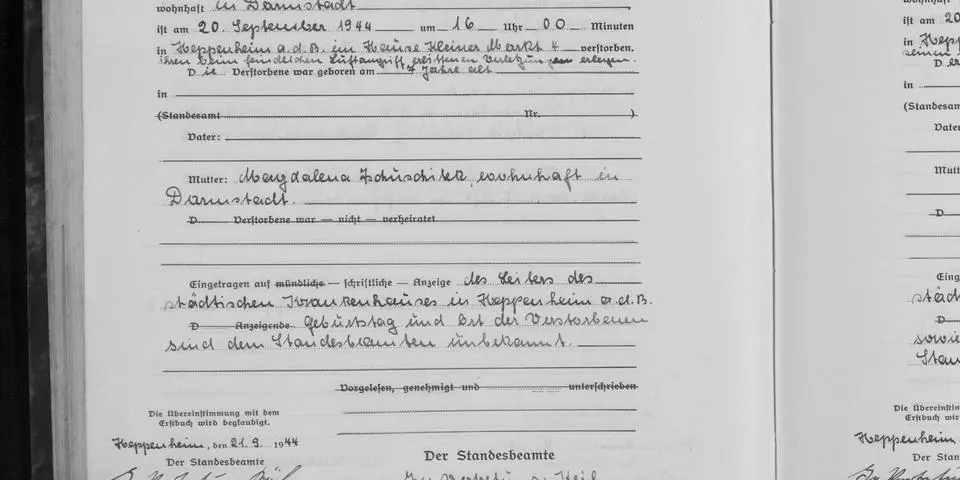 wohnhaft in Darmstadt
ist am 20. September 1944 um 16 Uhr 00 Minuten
in Heppenheim a.d.B. im Hause Kleiner Markt 4 verstorben.
ihren beim feindlichen Luftangriff erlittenen Verletzungen erlegen.
Die Verstorbene war geboren am 7 Jahre alt
in
(Standesamt Nr. )
Vater:
Mutter: Magdalena Zschuschitzk, wohnhaft in
Darmstadt.
D Verstorbene war — nicht — verheiratet
Eingetragen auf mündliche — schriftliche — Anzeige des Leiters des
städtischen Krankenhauses in Heppenheim a.d.B.
D Anzeigende Geburtstag und Ort der Verstorbenen
sind dem Standesbeamten unbekannt.
Vorgelesen, genehmigt und unterschrieben
Die Übereinstimmung mit dem
Erstbuch wird beglaubigt.
Heppenheim, den 21.9. 1944
Der Standesbeamte
Der Standesbeamte
In Vertretung
ist am 20
in Hepp
seinen
D er
in
(Standesam
Vater
Mutt
D
Eing
städt
D
sowie
Stan
Die Übereinst
Erstbuch wir
Heppenheim
Der Stan